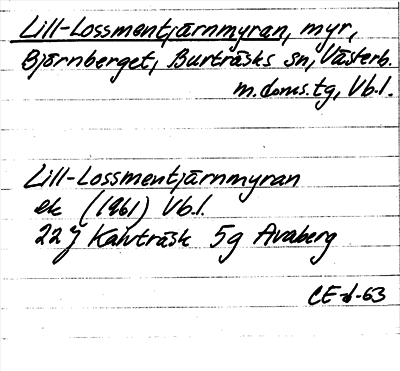 Lill-Lossmentjärnmyran, myr,
Björnberget, Burträsks sn, Västerb.
m.doms.tg, Vb.l.
Lill-Lossmentjärnmyran
ek (1961) Vb.l.
22 J Kalvträsk 5g Avaberg
CE-d-63